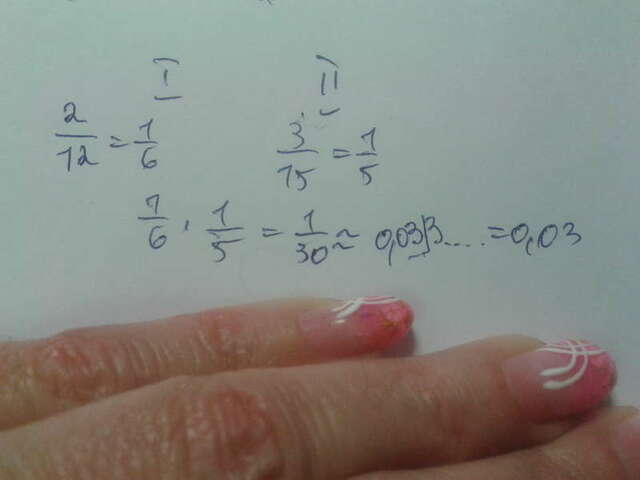 I II
2/12 = 1/6 3/15 = 1/5
1/6 · 1/5 = 1/30 ≈ 0,033.... = 0,03